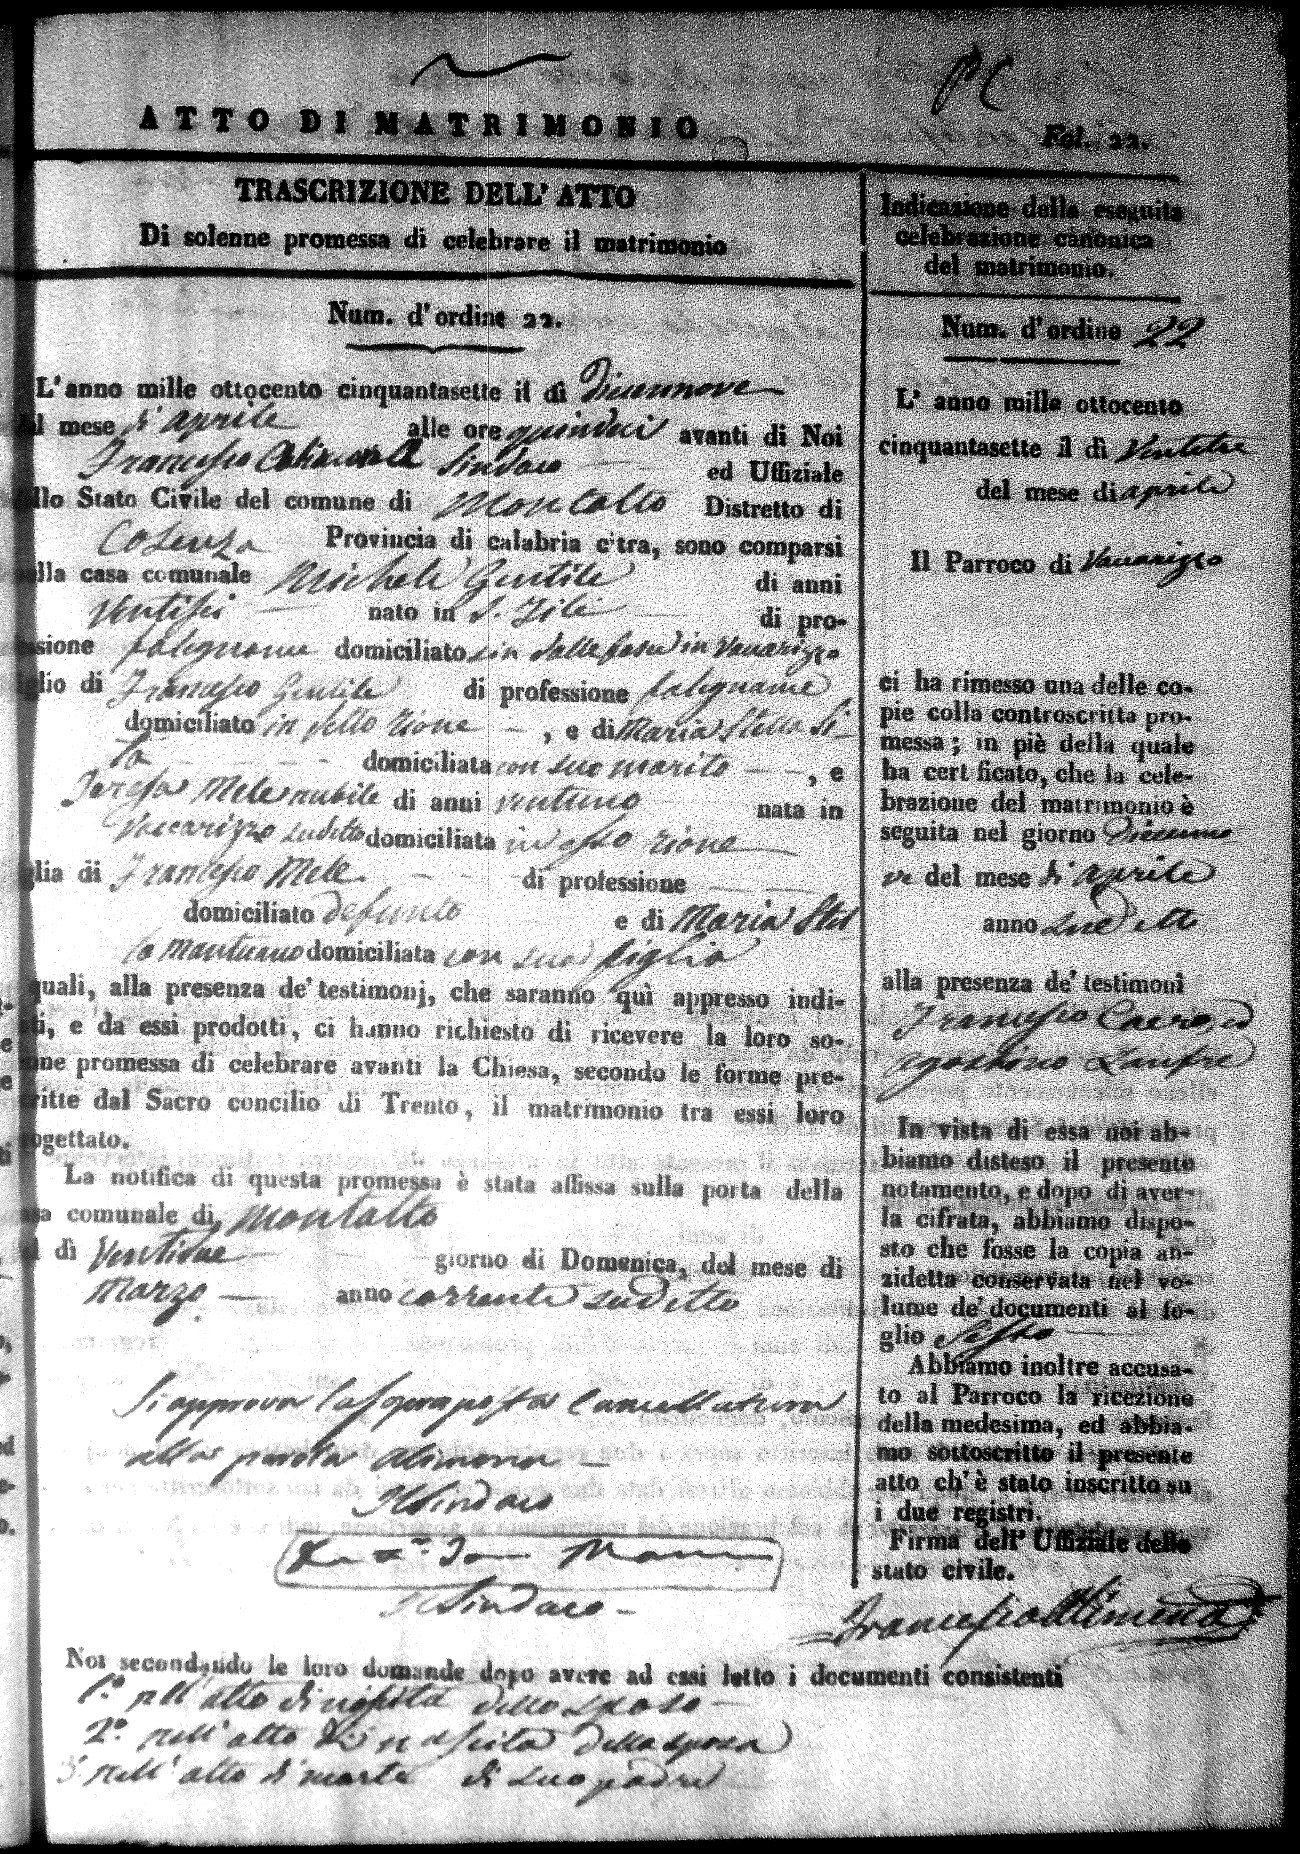 PC
ATTO DI MATRIMONIO
Fol. 22.
TRASCRIZIONE DELL' ATTO
Di solenne promessa di celebrare il matrimonio
Num. d' ordine 22.
L' anno mille ottocento cinquantasette il dì Diecennove
mese d' aprile alle ore quindici avanti di Noi
Francesco Sindaco ed Uffiziale
llo Stato Civile del comune di Montalto Distretto di
Cosenza Provincia di calabria citra, sono comparsi
lla casa comunale Michele Gentile di anni
ventisei nato in S. Sili di pro-
ssione falegname domiciliato in Vaccarizzo
glio di Francesco Gentile di professione falegname
domiciliato in detto rione , e di Maria Stella Si-
la domiciliata con suo marito , e
Teresa Mele nubile di anni ventuno nata in
Vaccarizzo sudetto domiciliata in esso rione
glia di Francesco Mele di professione
domiciliato defunto e di Maria Stel
la Mantuano domiciliata con sua figlia
quali, alla presenza de' testimonj, che saranno quì appresso indi-
ti, e da essi prodotti, ci hanno richiesto di ricevere la loro so-
ne promessa di celebrare avanti la Chiesa, secondo le forme pre-
ritte dal Sacro concilio di Trento, il matrimonio tra essi loro
ogettato.
La notifica di questa promessa è stata affissa sulla porta della
sa comunale di Montalto
l dì Ventidue giorno di Domenica, del mese di
Marzo anno corrente sudetto
Si approva la sopraposta cancellatura
alla parola Alimena
Il Sindaco
Il Sindaco
Indicazione della eseguita
celebrazione canonica
del matrimonio.
Num. d' ordine 22
L' anno mille ottocento
cinquantasette il dì Ventitre
del mese di aprile
Il Parroco di Vaccarizzo
ci ha rimesso una delle co-
pie colla controscritta pro-
messa; in piè della quale
ha cert ficato, che la cele-
brazione del matrimonio è
seguita nel giorno Diecenno
ve del mese di aprile
anno sudetto
alla presenza de' testimoni
Francesco
Agostino Lanfré
In vista di essa noi ab-
biamo disteso il presente
notamento, e dopo di aver-
la cifrata, abbiamo dispo-
sto che fosse la copia an-
zidetta conservata nel vo-
lume de' documenti al fo-
glio sesto
Abbiamo inoltre accusa-
to al Parroco la ricezione
della medesima, ed abbia-
mo sottoscritto il presente
atto ch' è stato inscritto su
i due registri.
Firma dell' Uffiziale dello
stato civile.
Francesco Alimena
Noi secondando le loro domande dopo avere ad essi letto i documenti consistenti
1.° nell' atto di nascita dello sposo
2.° nell' atto di nascita della sposa
3° nell' atto di morte di suo padre